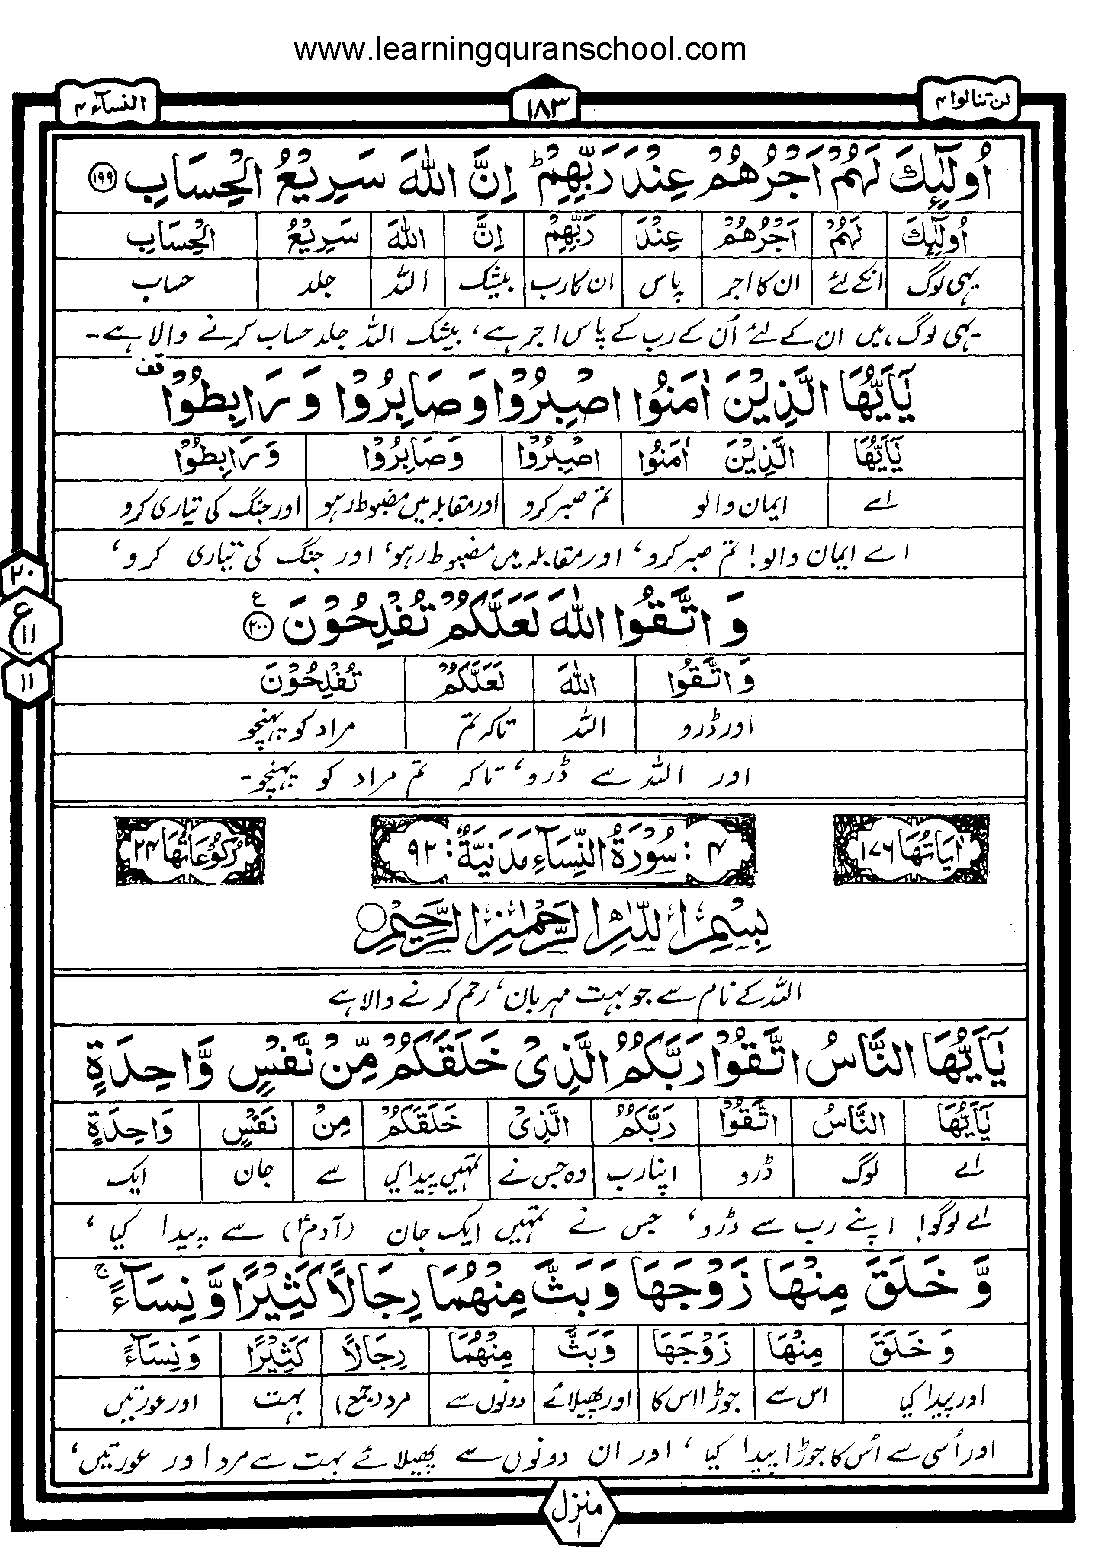 www.learningquranschool.com
لن تنالوا ۴ ۱۸۳ النسآء ۴
اُولٰٓئِكَ لَهُمْ اَجْرُهُمْ عِنْدَ رَبِّهِمْ ؕ اِنَّ اللّٰهَ سَرِيْعُ الْحِسَابِ ۱۹۹
اُولٰٓئِكَ لَهُمْ اَجْرُهُمْ عِنْدَ رَبِّهِمْ اِنَّ اللّٰهَ سَرِيْعُ الْحِسَابِ
یہی لوگ انکے لئے ان کا اجر پاس ان کا رب بیشک اللہ جلد حساب
یہی لوگ ہیں ان کے لئے اُن کے رب کے پاس اجر ہے، بیشک اللہ جلد حساب کرنے والا ہے۔
يٰۤاَيُّهَا الَّذِيْنَ اٰمَنُوا اصْبِرُوْا وَ صَابِرُوْا وَ رَابِطُوْا قف
يٰۤاَيُّهَا الَّذِيْنَ اٰمَنُوا اصْبِرُوْا وَ صَابِرُوْا وَ رَابِطُوْا
اے ایمان والو تم صبر کرو اور مقابلہ میں مضبوط رہو اور جنگ کی تیاری کرو
اے ایمان والو! تم صبر کرو، اور مقابلہ میں مضبوط رہو، اور جنگ کی تیاری کرو،
۲۰
ع
۱۱
۱۱
وَ اتَّقُوا اللّٰهَ لَعَلَّكُمْ تُفْلِحُوْنَ ۲۰۰ ع
وَ اتَّقُوا اللّٰهَ لَعَلَّكُمْ تُفْلِحُوْنَ
اور ڈرو اللہ تاکہ تم مراد کو پہنچو
اور اللہ سے ڈرو، تاکہ تم مراد کو پہنچو۔
اٰيَاتُهَا ۱۷۶ ۴ : سُوْرَةُ النِّسَآءِ مَدَنِيَّةٌ : ۹۲ رُكُوْعَاتُهَا ۲۴
بِسْمِ اللّٰهِ الرَّحْمٰنِ الرَّحِيْمِ
اللہ کے نام سے جو بہت مہربان، رحم کرنے والا ہے
يٰۤاَيُّهَا النَّاسُ اتَّقُوْا رَبَّكُمُ الَّذِيْ خَلَقَكُمْ مِّنْ نَّفْسٍ وَّاحِدَةٍ
يٰۤاَيُّهَا النَّاسُ اتَّقُوْا رَبَّكُمُ الَّذِيْ خَلَقَكُمْ مِنْ نَفْسٍ وَاحِدَةٍ
اے لوگ ڈرو اپنا رب وہ جس نے تمہیں پیدا کیا سے جان ایک
اے لوگو! اپنے رب سے ڈرو، جس نے تمہیں ایک جان (آدمؑ) سے پیدا کیا،
وَّ خَلَقَ مِنْهَا زَوْجَهَا وَ بَثَّ مِنْهُمَا رِجَالًا كَثِيْرًا وَّ نِسَآءً ۚ
وَ خَلَقَ مِنْهَا زَوْجَهَا وَ بَثَّ مِنْهُمَا رِجَالًا كَثِيْرًا وَ نِسَآءً
اور پیدا کیا اس سے جوڑا اس کا اور پھیلائے دونوں سے مرد (جمع) بہت اور عورتیں
اور اُسی سے اُس کا جوڑا پیدا کیا، اور ان دونوں سے پھیلائے بہت سے مرد اور عورتیں،
منزل ۱